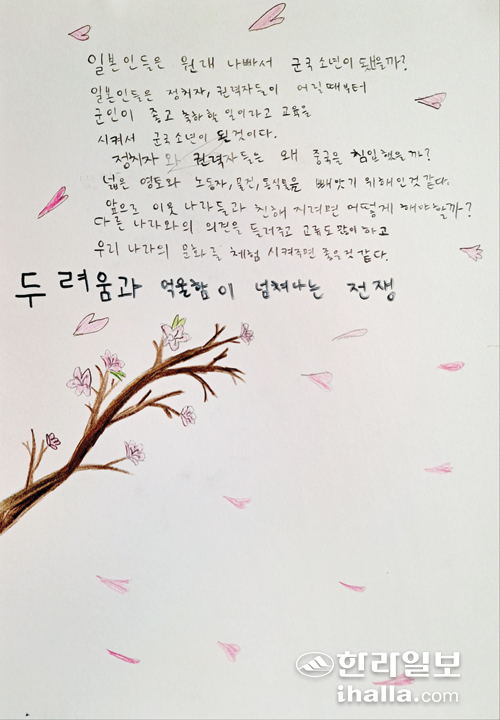 일본인들은 원래 나빠서 군국소년이 됐을까?
일본인들은 정치자, 권력자들이 어릴때부터
군인이 좋고 축하할 일이라고 교육을
시켜서 군국소년이 된것이다.
정치자 와 권력자들은 왜 중국을 침입했을까?
넓은 영토와 노동자, 물건, 음식물을 빼앗기 위해인것 같다.
앞으로 이웃 나라들과 친해 지려면 어떻게 해야할까?
다른 나라와의 의견을 들려주고 교류도 많이 하고
우리 나라의 문화를 체험 시켜주면 좋을것 같다.
두려움과 억울함이 넘쳐나는 전쟁
한라일보
ihalla.com